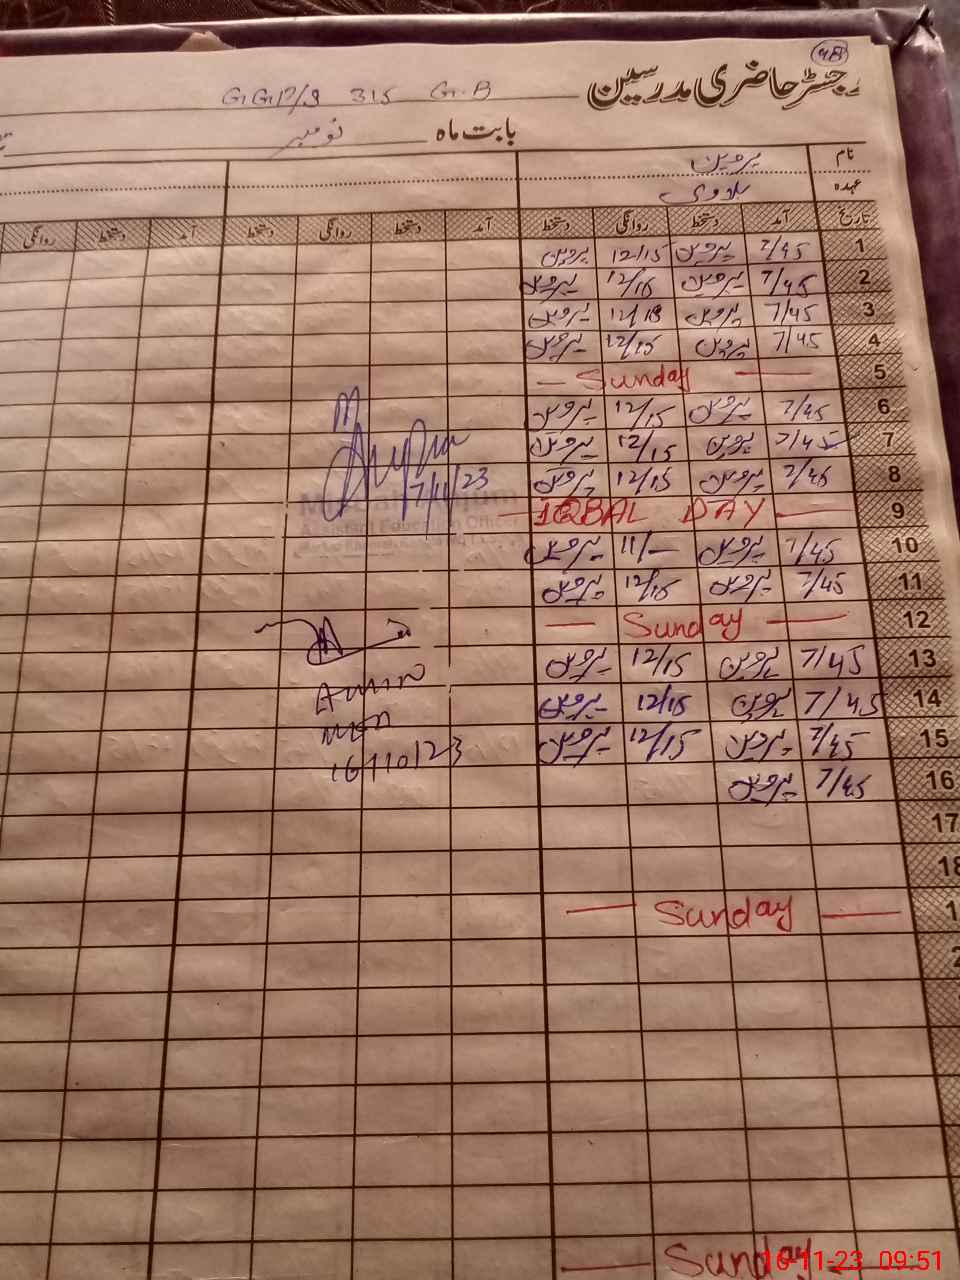 رجسٹر حاضری مدرسین
GGP/S 315 G.B
بابت ماہ نومبر
نام پروین
عہدہ
تاریخ آمد دستخط روانگی دستخط آمد دستخط روانگی دستخط آمد دستخط روانگی
1 7/45 پروین 12/15 پروین
2 7/45 پروین 12/15 پروین
3 7/45 پروین 12/15 پروین
4 7/45 پروین 12/15 پروین
5 — Sunday —
6 7/45 پروین 12/15 پروین
7 7/45 پروین 12/15 پروین
8 7/45 پروین 12/15 پروین
7/11/23
Assistant Education Officer
9 — IQBAL DAY —
10 7/45 پروین 11/— پروین
11 7/45 پروین 12/15 پروین
12 — Sunday —
13 7/45 پروین 12/15 پروین
14 7/45 پروین 12/15 پروین
15 7/45 پروین 12/15 پروین
16/10/23
16 7/45 پروین
17
18
— Sunday —
— Sunday —
16-11-23 09:51